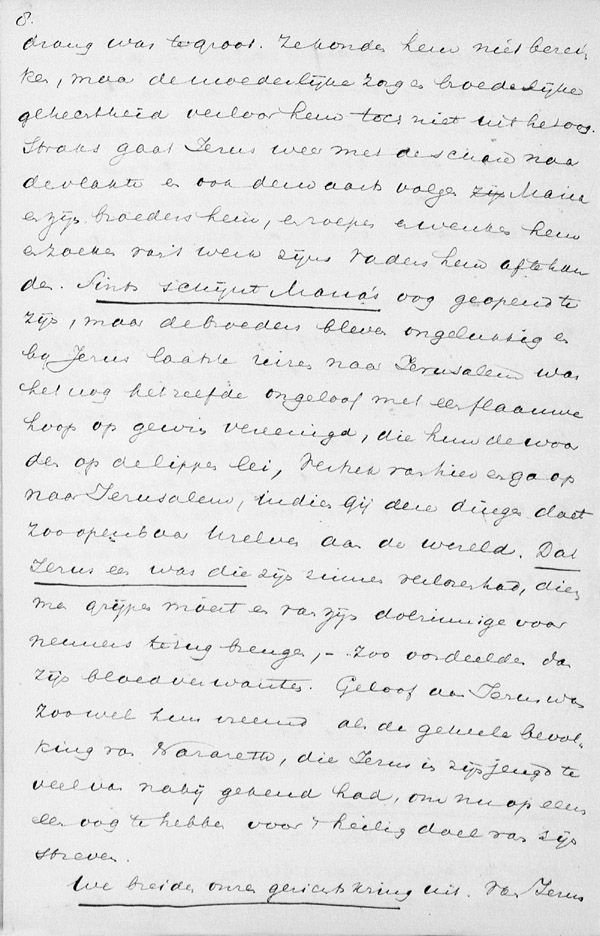 8.
drang was te groot. Ze konden hem niet berei-
ken, maar de moederlijke zorg en broederlijke
gehechtheid verloor hem toch niet uit het oog.
Straks gaat Jezus weer met de schare naar
de vlakte en ook derwaarts volgen zijn Maria
en zijn broeders hem, en roepen en wenken hem
en zoeken van 't werk zijns vaders hem af te hou
den. Sinds schijnt Maria's oog geopend te
zijn, maar de broeders bleven ongelukkig en
bij Jezus laatste reize naar Jeruzalem was
het nog hetzelfde ongeloof met een flaauwe
hoop op gewin vereenigd, die hun de woor
den op de lippen lei, Vertrek van hier en ga op
naar Jeruzalem, indien gij deze dingen doet
zoo openbaar Uzelven aan de wereld. Dat
Jezus een was die zijn zinnen verloren had, dien
men grijpen moest en van zijn dolzinnige voor
nemens terug brengen, – zoo oordeelden dan
zijn bloedverwanten. Geloof aan Jezus was
zoowel hun vreemd als de geheele bevol-
king van Nazareth, die Jezus in zijn jeugd te
veel van nabij gekend had, om nu op eens
een oog te hebben voor 't heilig doel van zijn
streven.
We breiden onzen gezichtskring uit. Van Jezus